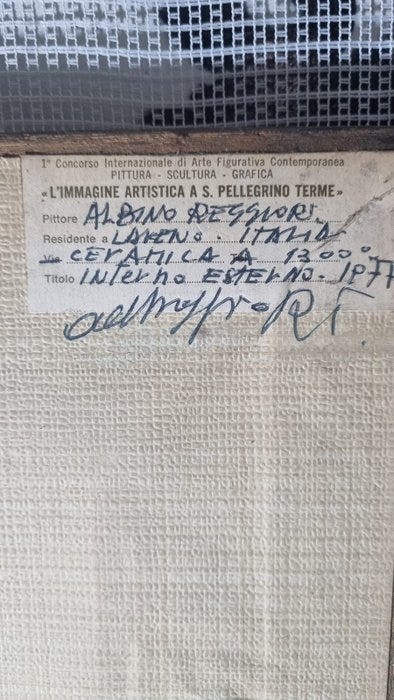 1° Concorso Internazionale di Arte Figurativa Contemporanea
PITTURA - SCULTURA - GRAFICA
«L'IMMAGINE ARTISTICA A S. PELLEGRINO TERME»
Pittore ALBINO REGGIORI
Residente a LAVENO. ITALIA
Via CERAMICA A 1300°
Titolo INTERNO ESTERNO. 1977